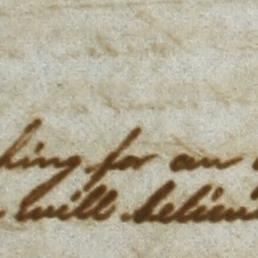 hing for an
will believ